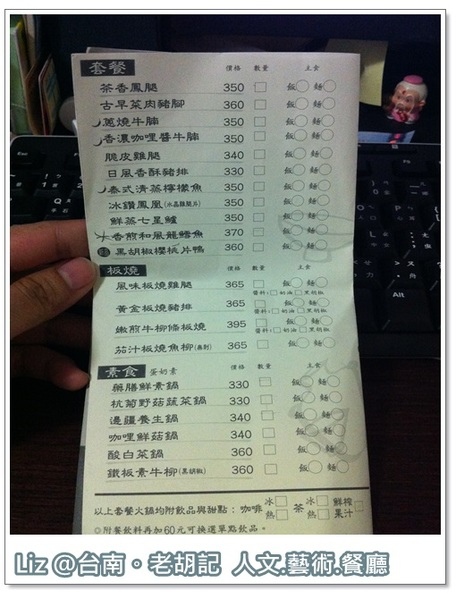 套餐 價格 數量 主食
茶香鳳腿 350 飯 麵
古早菜肉豬腳 360 飯 麵
蔥燒牛腩 350 飯 麵
香濃咖哩醬牛腩 350 飯 麵
脆皮雞腿 340 飯 麵
日風香酥豬排 330 飯 麵
泰式清蒸檸檬魚 350 飯 麵
冰鑽鳳凰(水晶雞腿片) 350 飯 麵
鮮蒸七星鱸 350 飯 麵
香煎和風龍鱈魚 370 飯 麵
黑胡椒櫻桃片鴨 360 飯 麵
板燒 價格 數量 主食
風味板燒雞腿 365 飯 麵
醬料: 奶油 黑胡椒
黃金板燒豬排 365 飯 麵
醬料: 奶油 黑胡椒
嫩煎牛柳條板燒 395 飯 麵
醬料: 奶油 黑胡椒
茄汁板燒魚柳(無刺) 365 飯 麵
素食 蛋奶素 價格 數量 主食
藥膳鮮素鍋 330 飯 麵
杭菊野菇蔬菜鍋 330 飯 麵
邊疆養生鍋 340 飯 麵
咖哩鮮菇鍋 340 飯 麵
酸白菜鍋 360 飯 麵
鐵板素牛柳(黑胡椒) 360 飯 麵
以上套餐火鍋均附飲品與甜點: 咖啡 冰 熱 茶 冰 熱 鮮榨果汁
◎附餐飲料再加60元可換選單點飲品。
Liz @台南。老胡記 人文.藝術.餐廳